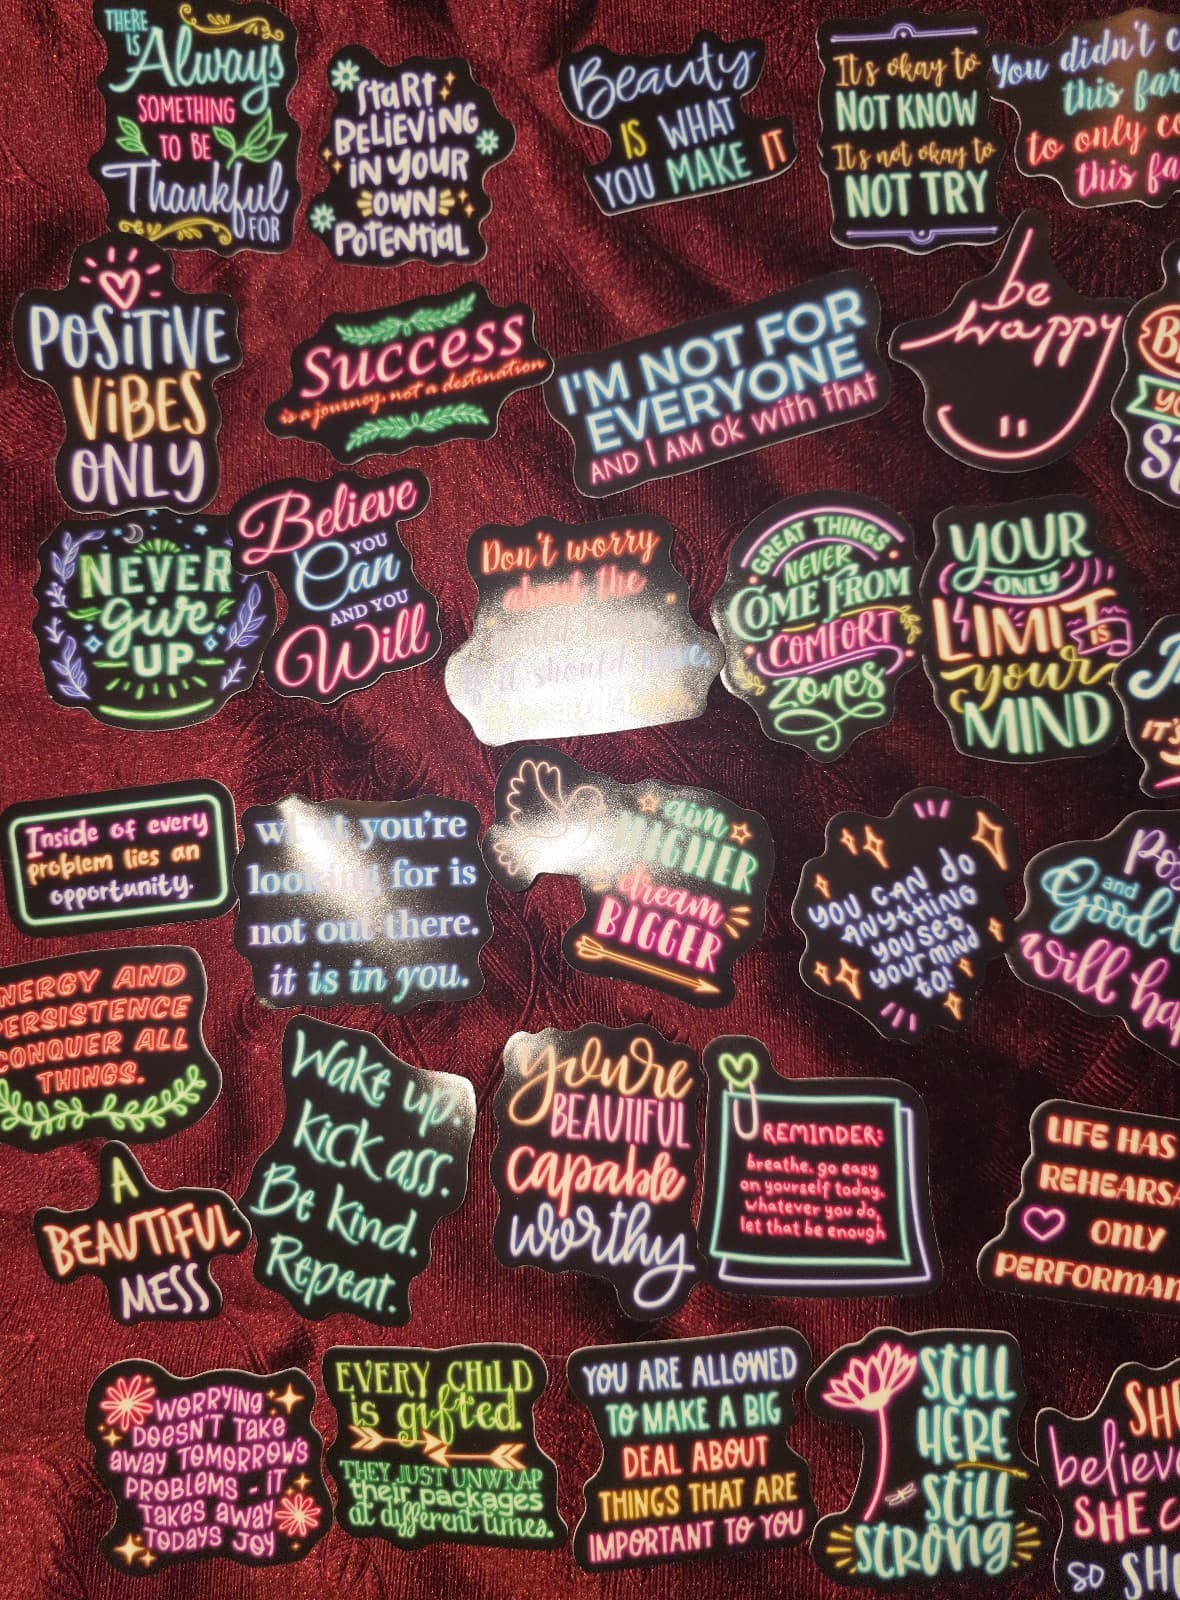 THERE
IS
Always
SOMETHING
TO BE
Thankful
FOR
START
BELIEVING
IN YOUR
OWN
POTENTIAL
Beauty
IS WHAT
YOU MAKE IT
It's okay to
NOT KNOW
It's not okay to
NOT TRY
You didn't
this far
to only
this
POSITIVE
VIBES
ONLY
Success
is a journey, not a destination
I'M NOT FOR
EVERYONE
AND I AM OK with that
be
happy
NEVER
give
UP
Believe
YOU
Can
AND YOU
Will
Don't worry
about the
if it should
GREAT THINGS
NEVER
COME FROM
COMFORT
ZONES
YOUR
ONLY
LIMIT
IS
your
MIND
IT'S
Inside of every
problem lies an
opportunity.
what you're
looking for is
not out there.
it is in you.
aim
HIGHER
dream
BIGGER
YOU CAN DO
ANYTHING
YOU SET
YOUR MIND
TO!
and
Good
will
NERGY AND
PERSISTENCE
CONQUER ALL
THINGS.
Wake up.
Kick ass.
Be Kind.
Repeat.
you're
BEAUTIFUL
capable
worthy
REMINDER:
breathe. go easy
on yourself today.
whatever you do,
let that be enough
LIFE HAS
REHEARSA
ONLY
PERFORMAN
A
BEAUTIFUL
MESS
WORRYING
DOESN'T TAKE
AWAY TOMORROW'S
PROBLEMS - IT
TAKES AWAY
TODAYS JOY
EVERY CHILD
is gifted.
THEY JUST UNWRAP
their packages
at different times.
YOU ARE ALLOWED
TO MAKE A BIG
DEAL ABOUT
THINGS THAT ARE
IMPORTANT TO YOU
STILL
HERE
STILL
STRONG
SHE
believe
SHE C
so SHE